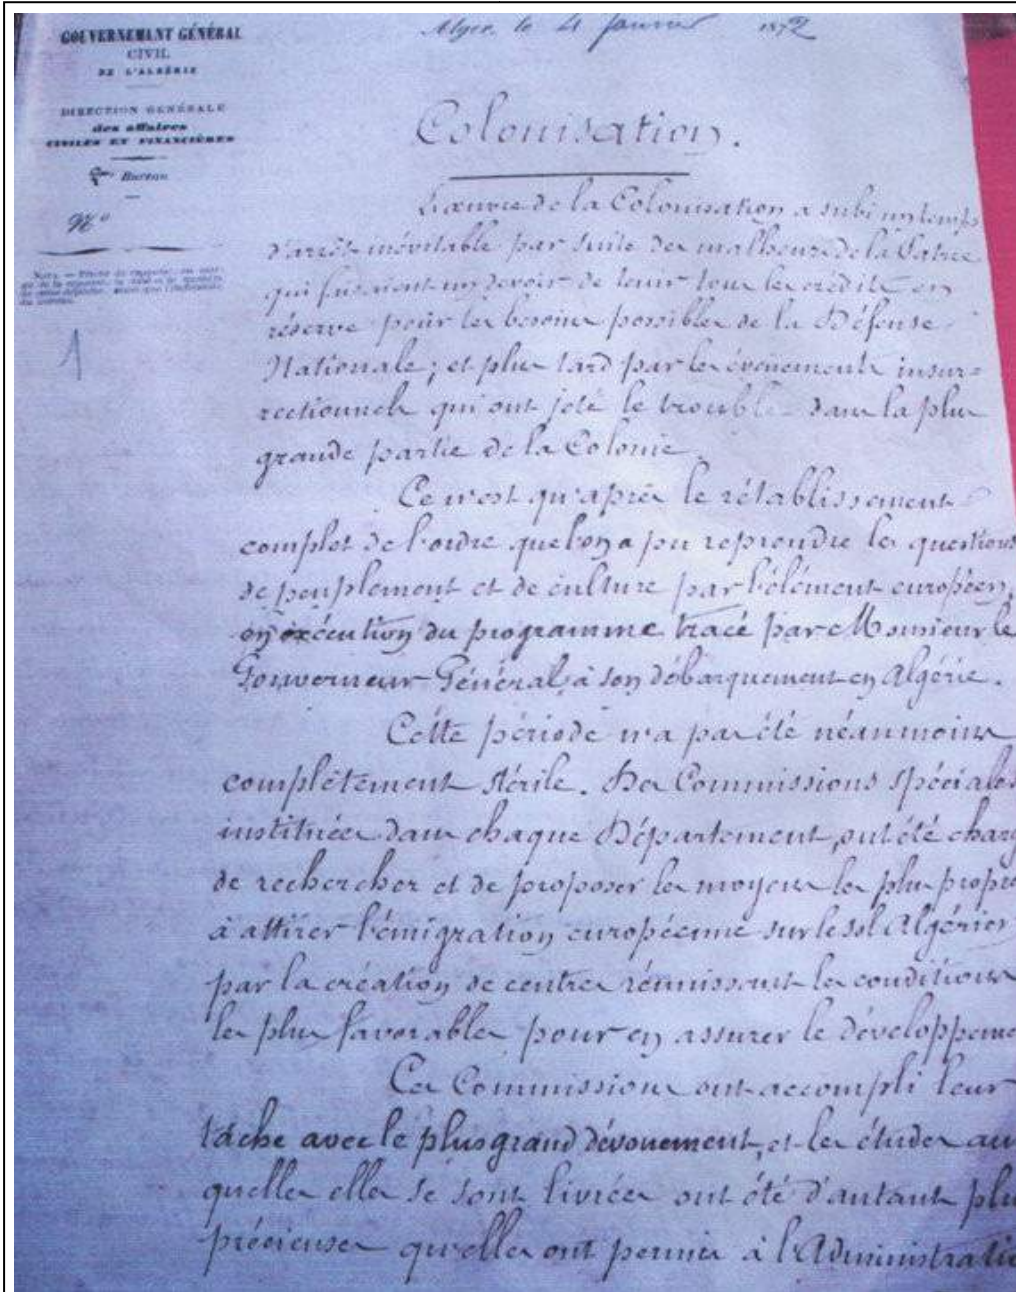 GOUVERNEMENT GÉNÉRAL
CIVIL
DE L'ALGÉRIE
DIRECTION GÉNÉRALE
des affaires
CIVILES ET FINANCIÈRES
Bureau
N°
1
Alger, le 4 Janvier 1872
Colonisation.
L'œuvre de la Colonisation a subi un temps
d'arrêt inévitable par suite des malheurs de la Patrie
qui faisaient un devoir de tenir tous les crédits en
réserve pour les besoins possibles de la Défense
Nationale; et plus tard par les événements insur-
rectionnels qui ont jeté le trouble dans la plus
grande partie de la Colonie.
Ce n'est qu'après le rétablissement
complet de l'ordre que l'on a pu reprendre les questions
de peuplement et de culture par l'élément européen,
en exécution du programme tracé par Monsieur le
Gouverneur Général, à son débarquement en Algérie.
Cette période n'a pas été néanmoins
complètement stérile. Des Commissions spéciales
instituées dans chaque Département, ont été charg
de rechercher et de proposer les moyens les plus propre
à attirer l'émigration européenne sur le sol Algérien
par la création de centres réunissant les conditions
les plus favorables pour en assurer le développeme
Ces Commissions ont accompli leur
tâche avec le plus grand dévouement, et les études au
quelles elles se sont livrées ont été d'autant plu
précieuses qu'elles ont permis à l'Administratio